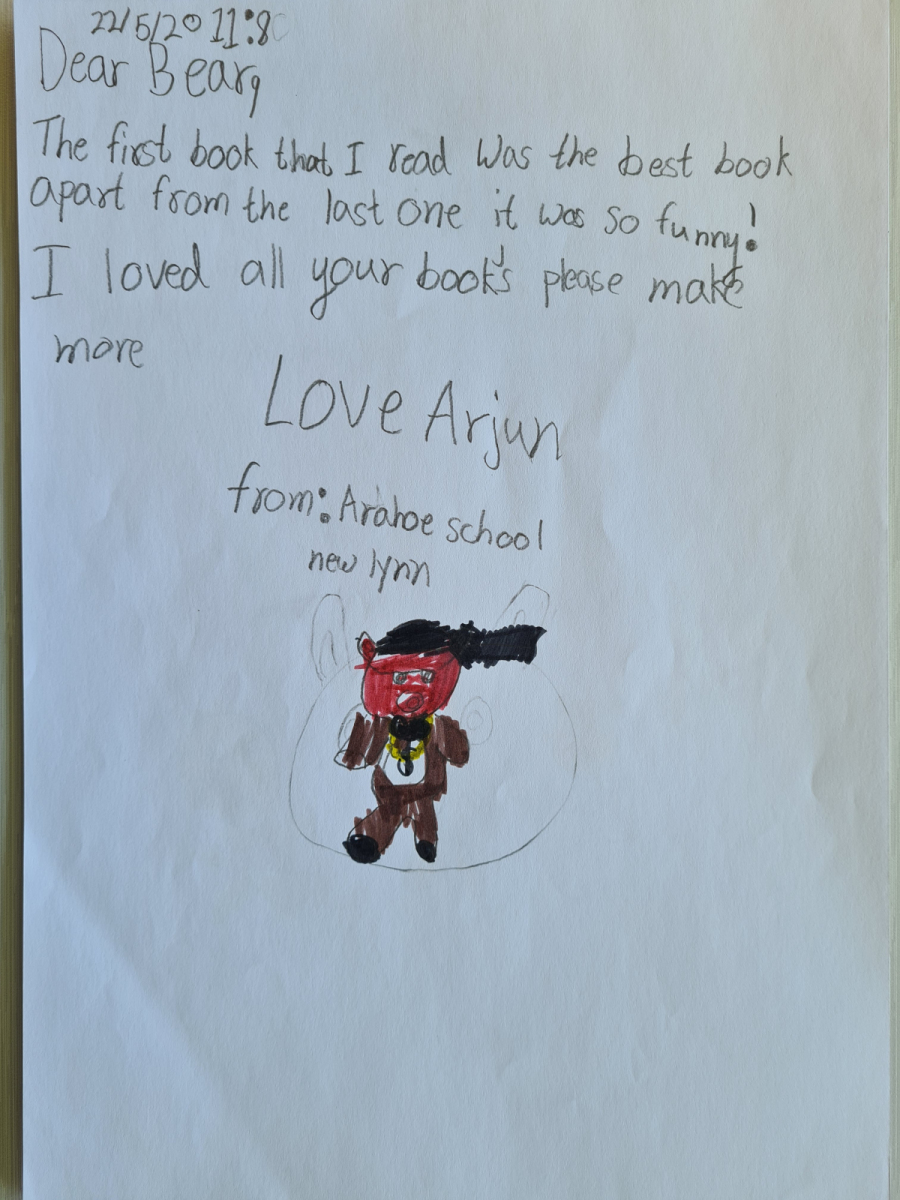 22/5/20 11:80
Dear Bear,
The first book that I read Was the best book
apart from the last one it was so funny!
I loved all your book's please make
more
Love Arjun
from: Arahoe school
new lynn